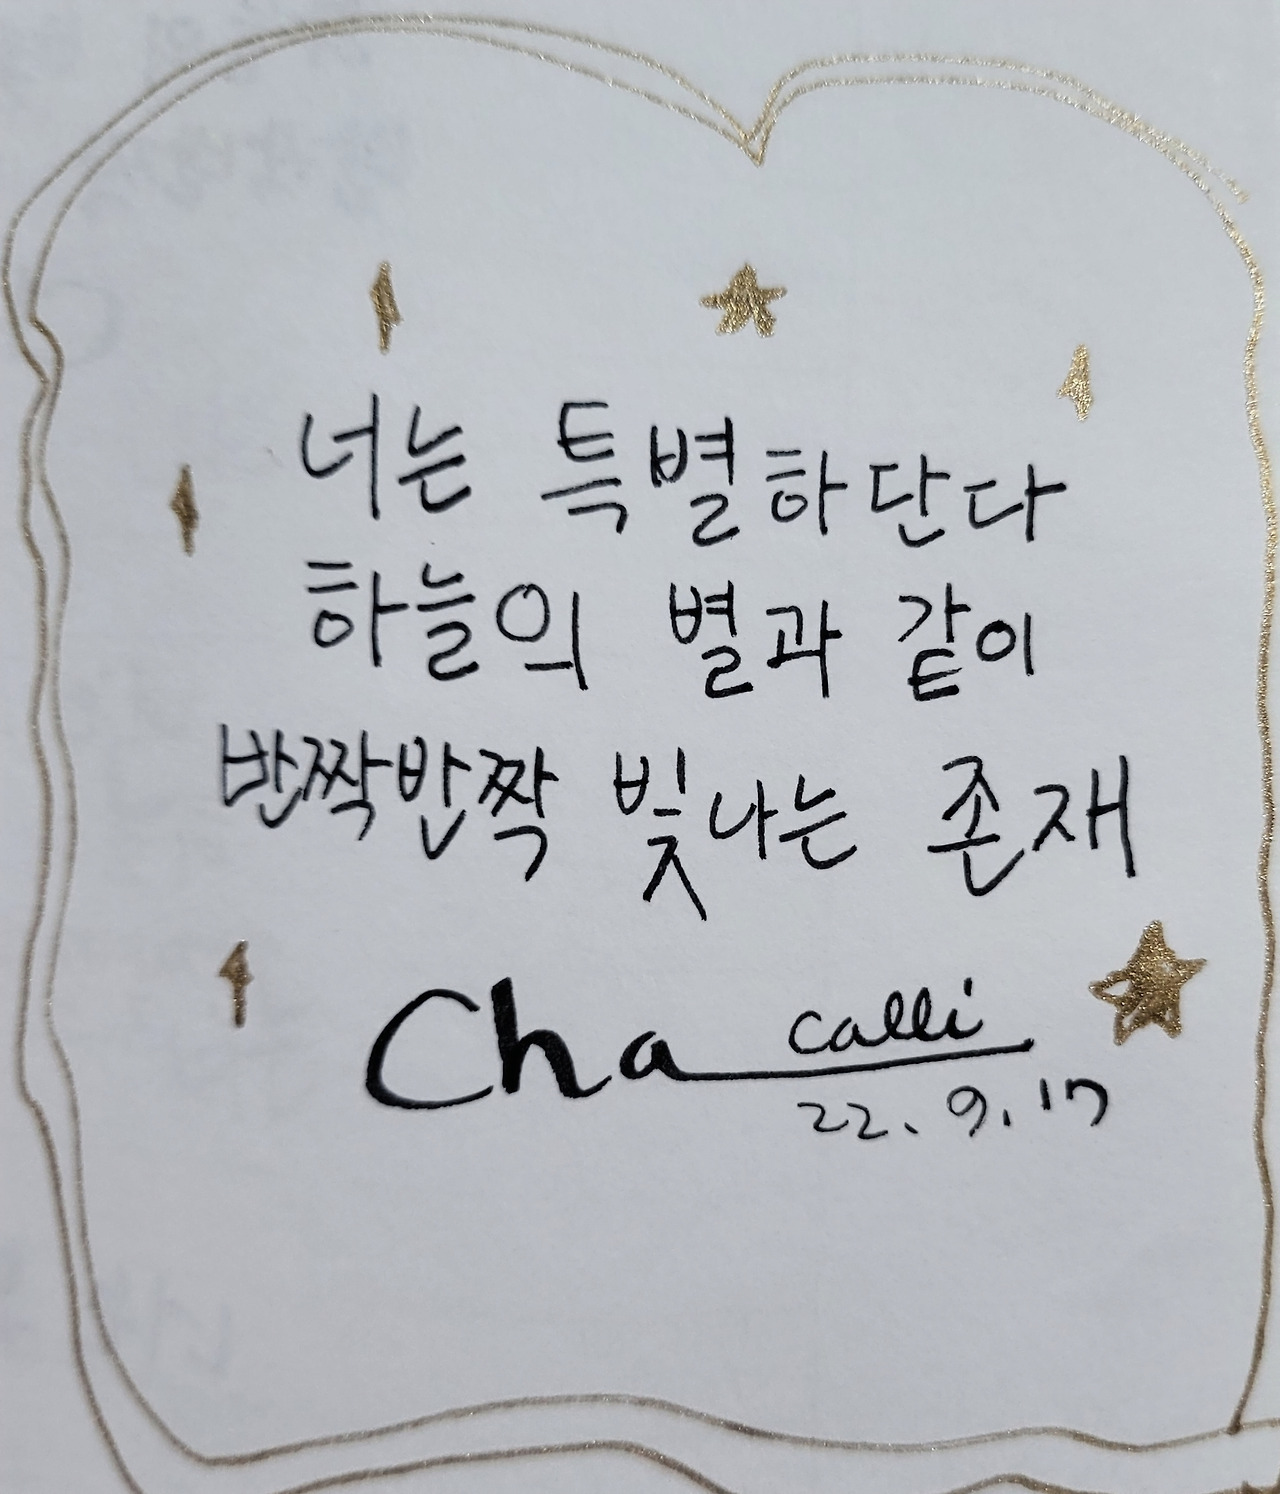 너는 특별하단다
하늘의 별과 같이
반짝반짝 빛나는 존재
Cha calli
22. 9. 17